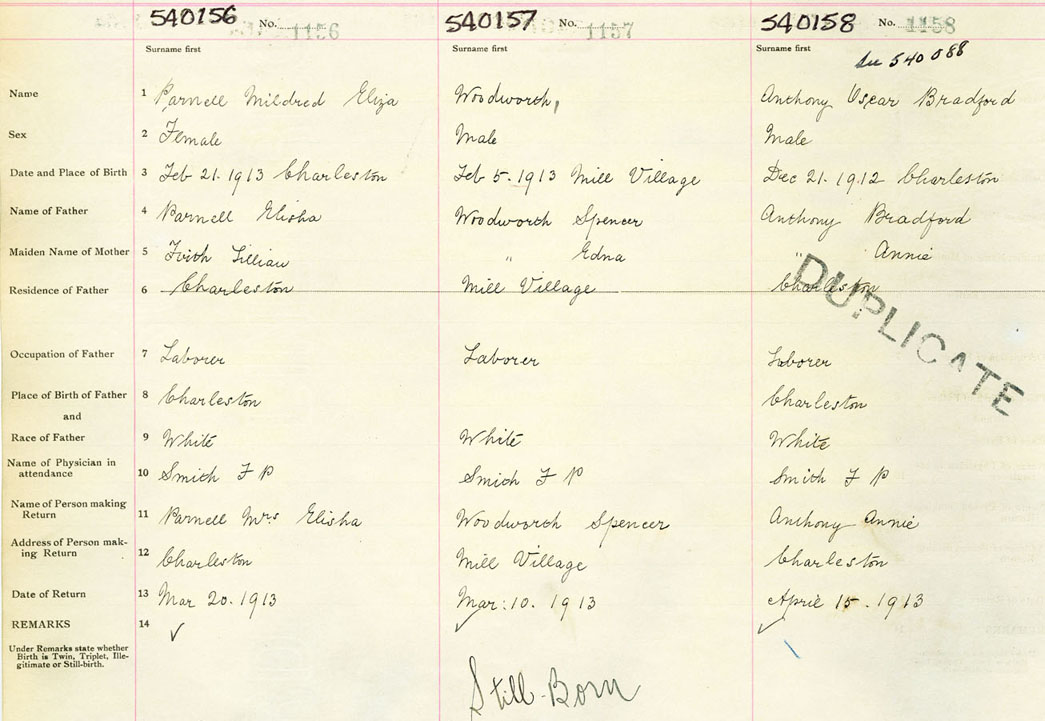 540156 No. 1156 540157 No. 1157 540158 No. 1158
Surname first Surname first Surname first
See 540088
Name 1 Parnell Mildred Eliza Woodworth, Anthony Oscar Bradford
Sex 2 Female Male Male
Date and Place of Birth 3 Feb 21. 1913 Charleston Feb 5. 1913 Mill Village Dec 21. 1912 Charleston
Name of Father 4 Parnell Elisha Woodworth Spencer Anthony Bradford
Maiden Name of Mother 5 Lillian " Edna " Annie
Residence of Father 6 Charleston Mill Village Charleston
DUPLICATE
Occupation of Father 7 Laborer Laborer Laborer
Place of Birth of Father 8 Charleston Charleston
and
Race of Father 9 White White White
Name of Physician in
attendance 10 Smith F P Smith F P Smith F P
Name of Person making
Return 11 Parnell Mrs Elisha Woodworth Spencer Anthony Annie
Address of Person mak-
ing Return 12 Charleston Mill Village Charleston
Date of Return 13 Mar 20. 1913 Mar. 10. 1913 April 15. 1913
REMARKS 14 ✓ ✓ ✓
Under Remarks state whether
Birth is Twin, Triplet, Ille-
gitimate or Still-birth.
Still-Born